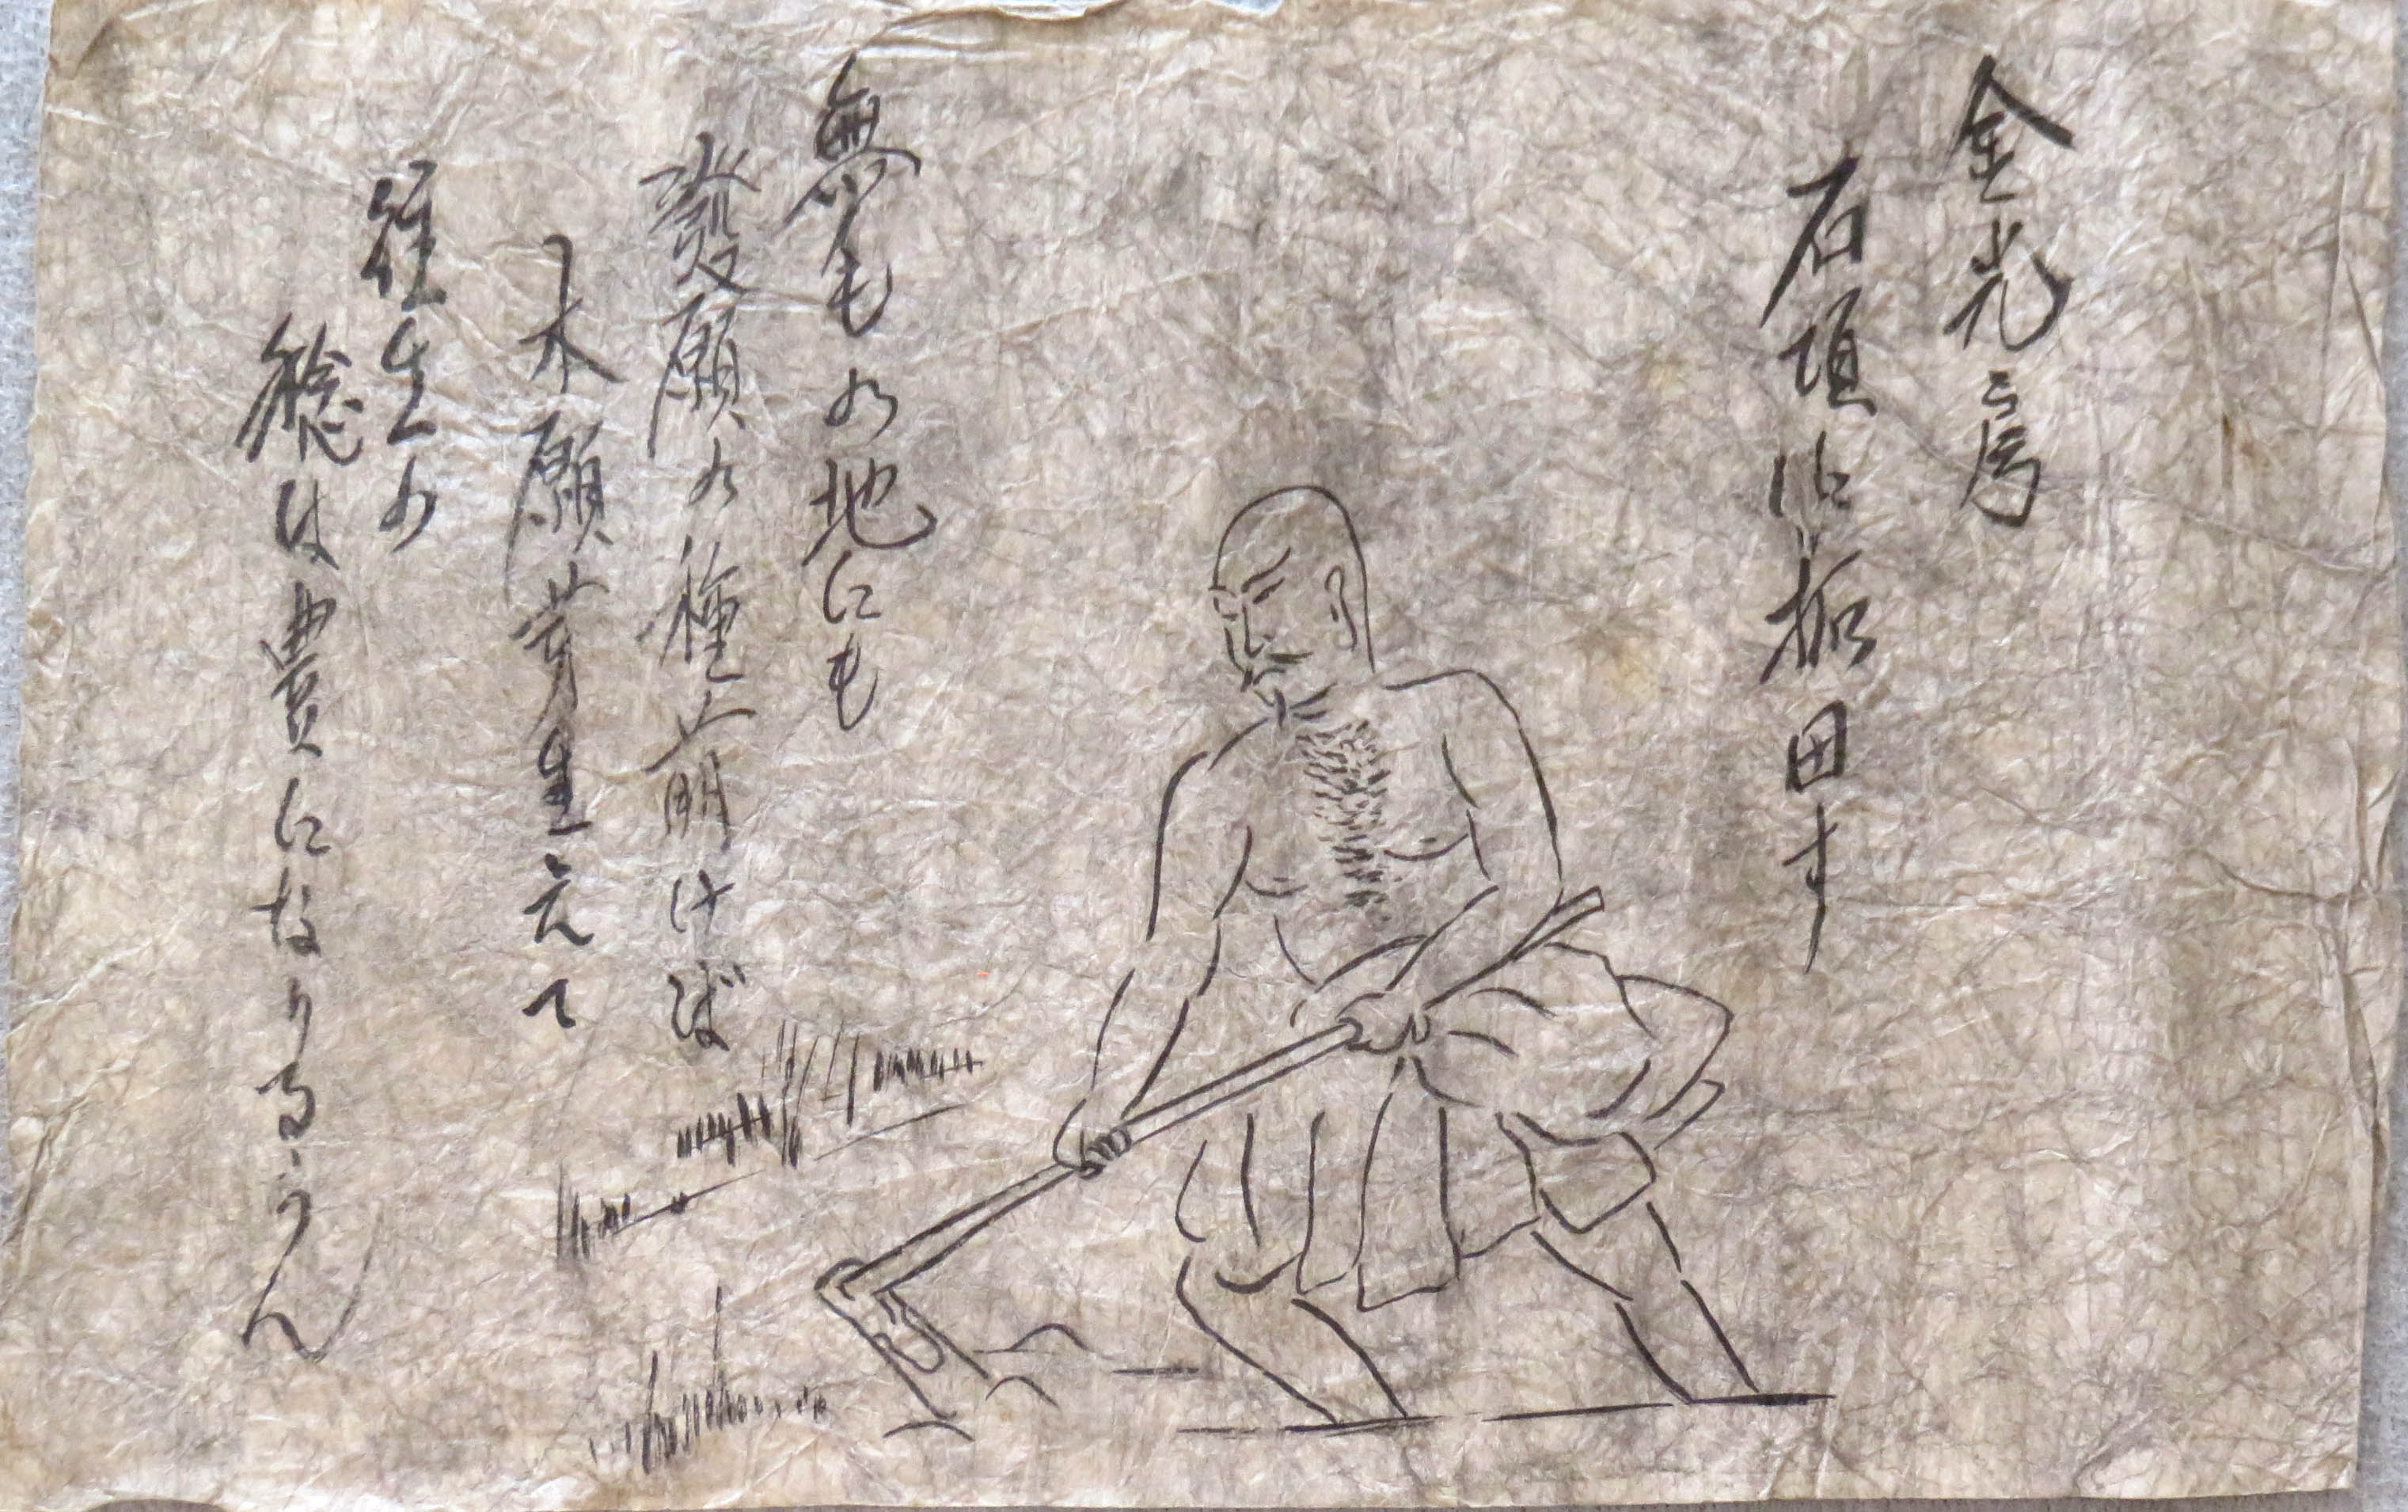 金光房
石垣に拓田す
無毛の地にも
發願の種萌けば
本願芽生えて
往生の
稔は豊になりる